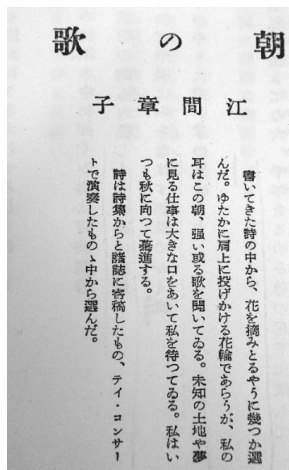 朝の歌
江間章子
書いてきた詩の中から、花を摘みとるやうに幾つか選
んだ。ゆたかに肩上に投げかける花輪であらうが、私の
耳はこの朝、強い或る歌を聞いてゐる。未知の土地や夢
に見る仕事は大きな口をあいて私を待つてゐる。私はい
つも秋に向つて驀進する。
詩は詩集からと諸誌に寄稿したもの、テイ・コンサー
トで演奏したものゝ中から選んだ。